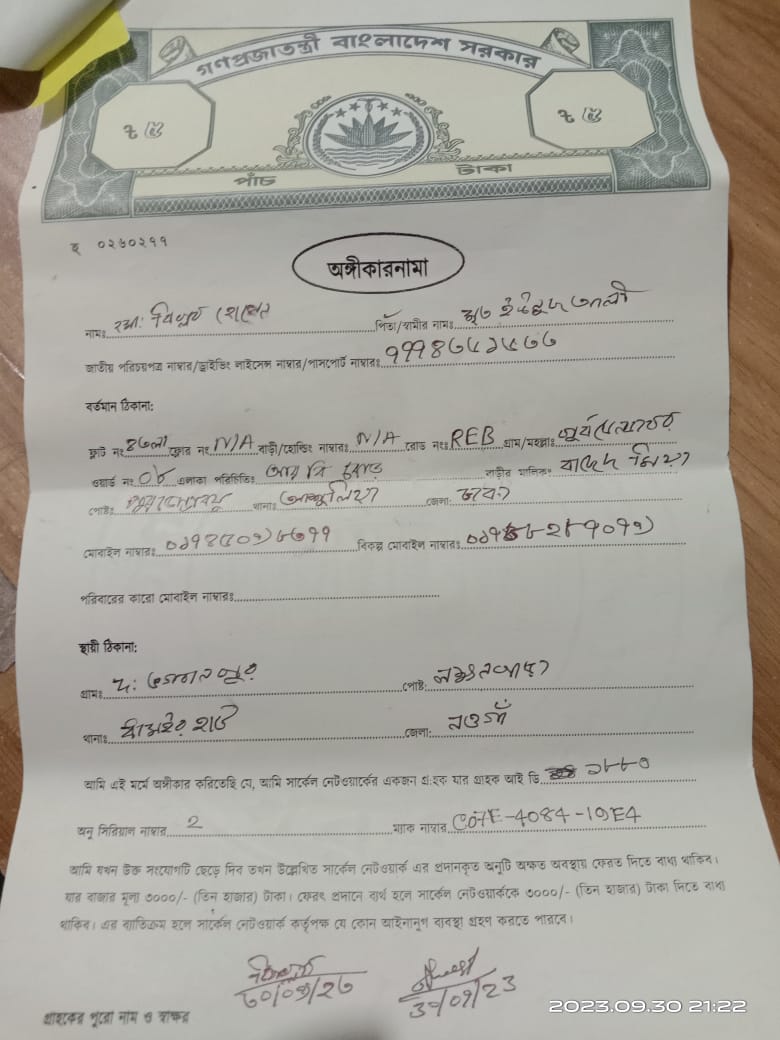 গণপ্রজাতন্ত্রী বাংলাদেশ সরকার
৳ ৫ ৳ ৫
পাঁচ টাকা
০২৬০২৭৭
অঙ্গীকারনামা
নামঃ মোঃ বিপ্লব হোসেন পিতা/স্বামীর নামঃ মৃত আলী
জাতীয় পরিচয়পত্র নাম্বার/ড্রাইভিং লাইসেন্স নাম্বার/পাসপোর্ট নাম্বারঃ
বর্তমান ঠিকানা:
ফ্লাট নং ফ্লোর নং N/A বাড়ী/হোল্ডিং নাম্বারঃ N/A রোড নংঃ REB গ্রাম/মহল্লাঃ
ওয়ার্ড নং ০৮ এলাকা পরিচিতিঃ বাড়ীর মালিকঃ মিয়া
পোষ্টঃ থানাঃ আশুলিয়া জেলা: ঢাকা
মোবাইল নাম্বারঃ বিকল্প মোবাইল নাম্বারঃ
পরিবারের কারো মোবাইল নাম্বারঃ
স্থায়ী ঠিকানা:
গ্রামঃ পোষ্ট:
থানাঃ ধামইর হাট জেলা: নওগাঁ
আমি এই মর্মে অঙ্গীকার করিতেছি যে, আমি সার্কেল নেটওয়ার্কের একজন গ্রাহক যার গ্রাহক আই ডি ১৮৮০
অনু সিরিয়াল নাম্বার 2 ম্যাক নাম্বার C07E-4084-19E4
আমি যখন উক্ত সংযোগটি ছেড়ে দিব তখন উল্লেখিত সার্কেল নেটওয়ার্ক এর প্রদানকৃত অনুটি অক্ষত অবস্থায় ফেরত দিতে বাধ্য থাকিব।
যার বাজার মূল্য ৩০০০/- (তিন হাজার) টাকা। ফেরৎ প্রদানে ব্যর্থ হলে সার্কেল নেটওয়ার্ককে ৩০০০/- (তিন হাজার) টাকা দিতে বাধ্য
থাকিব। এর ব্যতিক্রম হলে সার্কেল নেটওয়ার্ক কর্তৃপক্ষ যে কোন আইনানুগ ব্যবস্থা গ্রহণ করতে পারবে।
বিপ্লব
৩০/০৯/২৩ 30/09/23
গ্রাহকের পুরো নাম ও স্বাক্ষর
2023.09.30 21:22